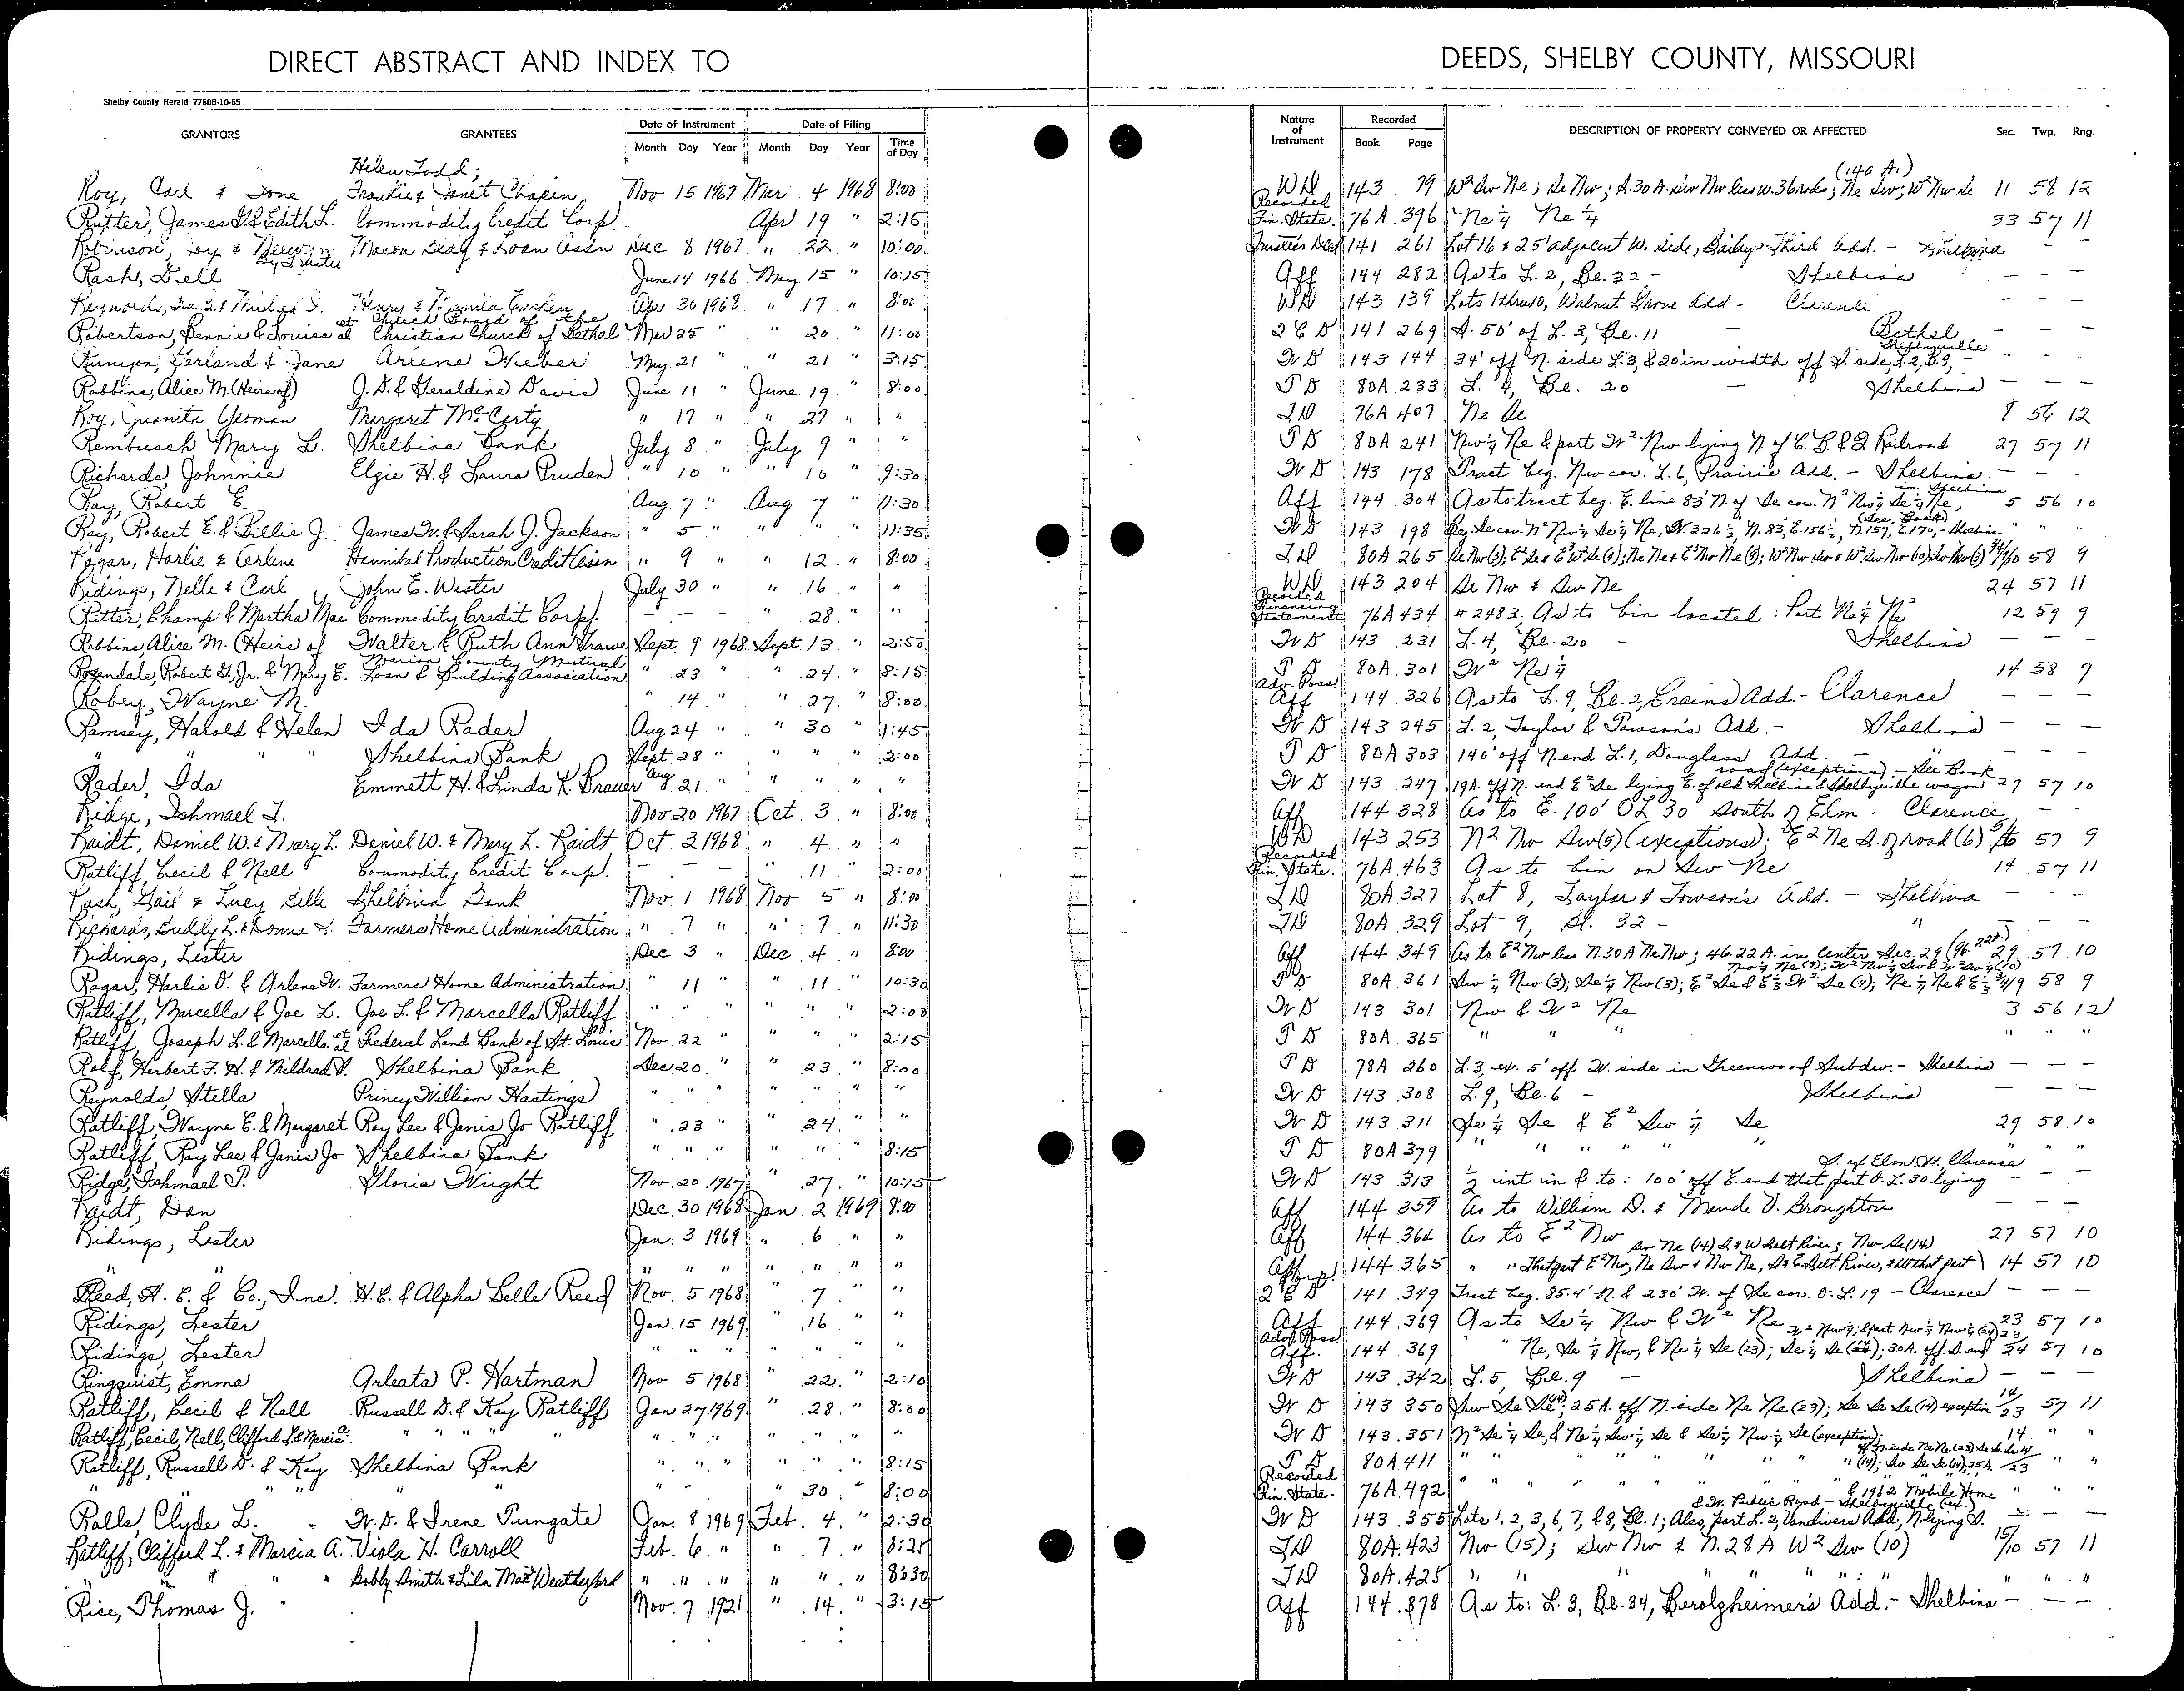 DIRECT ABSTRACT AND INDEX TO
DEEDS, SHELBY COUNTY, MISSOURI
Shelby County Herald 7780B-10-65
GRANTORS GRANTEES Date of Instrument Month Day Year Date of Filing Month Day Year Time of Day
Nature of Instrument Recorded Book Page DESCRIPTION OF PROPERTY CONVEYED OR AFFECTED Sec. Twp. Rng.
Helen Todd; (140 A.)
Roy, Carl & Ione Franklie & Janet Chapin Nov 15 1967 Mar 4 1968 8:00 WD 143 79 W² Sw Ne; Se Nw; S.30 A. Sw Nw less W.36 rods; Ne Sw; W² Nw Se 11 58 12
Rutter, James G. & Edith L. Commodity Credit Corp. Apr 19 " 2:15 Recorded Fin. State. 76A 396 Ne¼ Ne¼ 33 57 11
Robinson, Roy & by Trustee Macon Bldg & Loan Ass'n Dec 8 1967 " 22 " 10:00 Trustee's Deed 141 261 Lot 16 & 25' adjacent W. side, Bailey's Third Add. - Shelbina - -
Rash, Dell June 14 1966 May 15 " 10:15 Aff 144 282 As to L. 2, Bl. 32 - Shelbina - - -
Reynolds, Ira L. & Mildred I. Henry & Emken Apr 30 1968 " 17 " 8:02 WD 143 139 Lots 1 thru 10, Walnut Grove Add - Clarence - - -
Robertson, Bennie & Louisa et al Church Board of the Christian Church of Bethel Mar 25 " " 20 " 11:00 2 C D 141 269 S. 50' of L. 3, Bl. 11 - Bethel - - -
Runyon, Garland & Jane Arlene Wieber May 21 " " 21 " 3:15 W D 143 144 34' off N. side L. 3, & 20' in width off S. side, L. 2, B. 9, - Shelbyville - - -
Robbins, Alice M. (Heirs of) J. D. & Geraldine Davis June 11 " June 19 " 8:00 T D 80A 233 L. 4, Bl. 20 - Shelbina - - -
Roy, Juanita Yeoman Margaret McCarty " 17 " " 27 " " TD 76A 407 Ne Se 8 56 12
Rembusch Mary L. Shelbina Bank July 8 " July 9 " " T D 80A 241 Nw¼ Ne & part W² Nw lying N of C. B. & Q Railroad 27 57 11
Richards, Johnnie Elgie H. & Laura Pruden " 10 " " 10 " 9:30 W D 143 178 Tract beg. Nw cor. L. 6, Prairie Add. - Shelbina - - -
Ray, Robert E. Aug 7 " Aug 7 " 11:30 Aff 144 304 As to tract beg. E. line 83' N. of Se cor. N² Nw¼ Se¼ Ne, in Shelbina 5 56 10
Ray, Robert E. & Billie J. James W. & Sarah J. Jackson " 5 " " " " 11:35 W D 143 198 Beg. Se cor. N² Nw¼ Se¼ Ne, W 326½, N. 83, E. 156½, N 157, E. 170, - Shelbina (See Book) " " "
Ragar, Harlie & Arlene Hannibal Production Credit Ass'n " 9 " " 12 " 8:00 TD 80A 265 58 9
Ridings, Nelle & Carl John E. Wester July 30 " " 16 " " WD 143 204 Se Nw & Sw Ne 24 57 11
Ritter, Champ & Martha Mae Commodity Credit Corp. - - " 28 " " Recorded Financing Statement 76A 434 #2483, As to bin located: Part Ne¼ Ne² 12 59 9
Robbins, Alice M. (Heirs of Walter & Ruth Ann Grawe Sept. 9 1968 Sept 13 " 2:50 W D 143 231 L. 4, Bl. 20 - Shelbina - - -
Rosendale, Robert G., Jr. & Mary E. Marion County Mutual Loan & Building Association " 23 " 24 " 8:15 T D 80A 301 W² Ne¼ 14 58 9
Robey, Wayne M. " 14 " " 27 " 8:00 Adv. Poss. Aff 144 326 As to L. 9, Bl. 2, Crains Add. - Clarence - - -
Ramsey, Harold & Helen Ida Rader Aug 24 " " 30 " 1:45 W D 143 245 L. 2, Taylor & Towson's Add. - Shelbina - - -
" " " Shelbina Bank Sept. 28 " " " " 2:00 T D 80A 303 140' off N. end L. 1, Douglass Add. - " - - -
Rader, Ida Emmett H. & Linda K. Brauer Aug 21 " " " " " W D 143 247 19A. off N. end E² Se lying E. of old Shelbina & Shelbyville wagon road (exceptions) - See Book 29 57 10
Ridge, Ishmael T. Nov 20 1967 Oct. 3 " 8:00 Aff 144 328 As to E. 100' OL 30 South of Elm - Clarence - -
Raidt, Daniel W. & Mary L. Daniel W. & Mary L. Raidt Oct 2 1968 " 4 " " WD 143 253 N² Nw Sw (5) (exceptions); E² Ne S. of road (6) 5/6 57 9
Ratliff, Cecil & Nell Commodity Credit Corp. - - - " 11 " 2:00 Recorded Fin. State. 76A 463 As to bin on Sw Ne 14 57 11
Rash, Gail & Lucy Belle Shelbina Bank Nov. 1 1968 Nov 5 " 8:00 TD 80A 327 Lot 8, Taylor & Towson's Add. - Shelbina - - -
Richards, Buddy L. & Donna K. Farmers Home Administration " 7 " " 7 " 11:30 TD 80A 329 Lot 9, Bl. 32 - " - - -
Ridings, Lester Dec 3 " Dec 4 " 8:00 Aff 144 349 As to E² Nw less N. 30 A Ne Nw; 46.22 A. in Center Sec. 29 (96.22A) 29 57 10
Ragar, Harlie O. & Arlene W. Farmers Home Administration " 11 " " 11 " 10:30 T D 80A 361 Sw¼ Nw (3); Se¼ Nw (3); 58 9
Ratliff, Marcella & Joe L. Joe L. & Marcella Ratliff " " " " " " 2:00 W D 143 301 Nw & W² Ne 3 56 12
Ratliff, Joseph L. & Marcella et al Federal Land Bank of St. Louis Nov. 22 " " " " 2:15 T D 80A 365 " " " " " "
Rolf, Herbert F. H. & Mildred I. Shelbina Bank Dec 20 " " 23 " 8:00 T D 78A 260 L. 3, ex. 5' off W. side in Greenwood Subdiv. - Shelbina - - -
Reynolds, Stella Princy William Hastings " " " " " " " W D 143 308 L. 9, Bl. 6 - Shelbina - - -
Ratliff, Wayne E. & Margaret Roy Lee & Janis Jo Ratliff " 23 " " 24 " " W D 143 311 Se¼ Se & E² Sw¼ Se 29 58 10
Ratliff, Roy Lee & Janis Jo Shelbina Bank " " " " " " 8:15 T D 80A 379 " " " " " " "
Ridge, Ishmael T. Gloria Wright Nov. 20 1967 " 27 " 10:15 W D 143 313 ½ int in & to: 100' off E. end that part O. L. 30 lying S. of Elm St., Clarence - - -
Raidt, Dan Dec 30 1968 Jan 2 1969 8:00 Aff 144 359 As to William D. & Maude V. Broughton - - -
Ridings, Lester Jan. 3 1969 " 6 " " Aff 144 364 As to E² Nw 27 57 10
" " " " " " " " " Aff 144 365 " " That part E² Nw, Ne Sw & Nw Ne, S & E. Salt River, & all that part Sw Ne (14) S & W Salt River; Nw Se (14) 14 57 10
Reed, H. E. & Co., Inc. H. E. & Alpha Belle Reed Nov. 5 1968 " 7 " " Corp. 2 C D 141 349 Tract beg. 85.4' N. & 230' W. of Se cor. O. L. 19 - Clarence - - -
Ridings, Lester Jan. 15 1969 " 16 " " Aff 144 369 As to Se¼ Nw & W² Ne 23 57 10
Ridings, Lester " " " " " " " Adv. Poss. Aff. 144 369 " " Ne, Se¼ Nw, & Ne¼ Se (23); 57 10
Ringquist, Emma Arleata P. Hartman Nov. 5 1968 " 22 " 2:10 W D 143 342 L. 5, Bl. 9 - Shelbina - - -
Ratliff, Cecil & Nell Russell D. & Kay Ratliff Jan 27 1969 " 28 " 8:00 W D 143 350 Sw Se Se (14); 25A. off N. side Ne Ne (23); Se Se Se (14) exception 14/23 57 11
Ratliff, Cecil, Nell, Clifford L. & Marcia A. " " " " " " " " " " W D 143 351 N² Se¼ Se, & Ne¼ Sw¼ Se & Se¼ Nw¼ Se (exception); 14 " "
Ratliff, Russell D. & Kay Shelbina Bank " " " " " " 8:15 T D 80A 411 " " " " 14/23 " "
" " " " " " " - 30 " 8:00 Recorded Fin. State. 76A 492 " " " " " & 1962 Mobile Home " " "
Ralls, Clyde L. W. D. & Irene Tungate Jan. 8 1969 Feb. 4 " 2:30 W D 143 355 Lots 1, 2, 3, 6, 7, & 8, Bl. 1; Also, part L. 2, Vandivers Add., N. lying S. & W. Public Road - Shelbyville (ex.) - - -
Ratliff, Clifford L. & Marcia A. Viola H. Carroll Feb. 6 " " 7 " 8:25 TD 80A 423 Nw (15); Sw Nw & N. 28 A W² Sw (10) 15/10 57 11
" " " " Bobby Smith & Lila Mae Weatherford " " " " " " 8:30 TD 80A 425 " " " " " " " " "
Rice, Thomas J. Nov. 7 1921 " 14 " 3:15 Aff 144 378 As to: L. 3, Bl. 34, Berolzheimer's Add. - Shelbina - - -